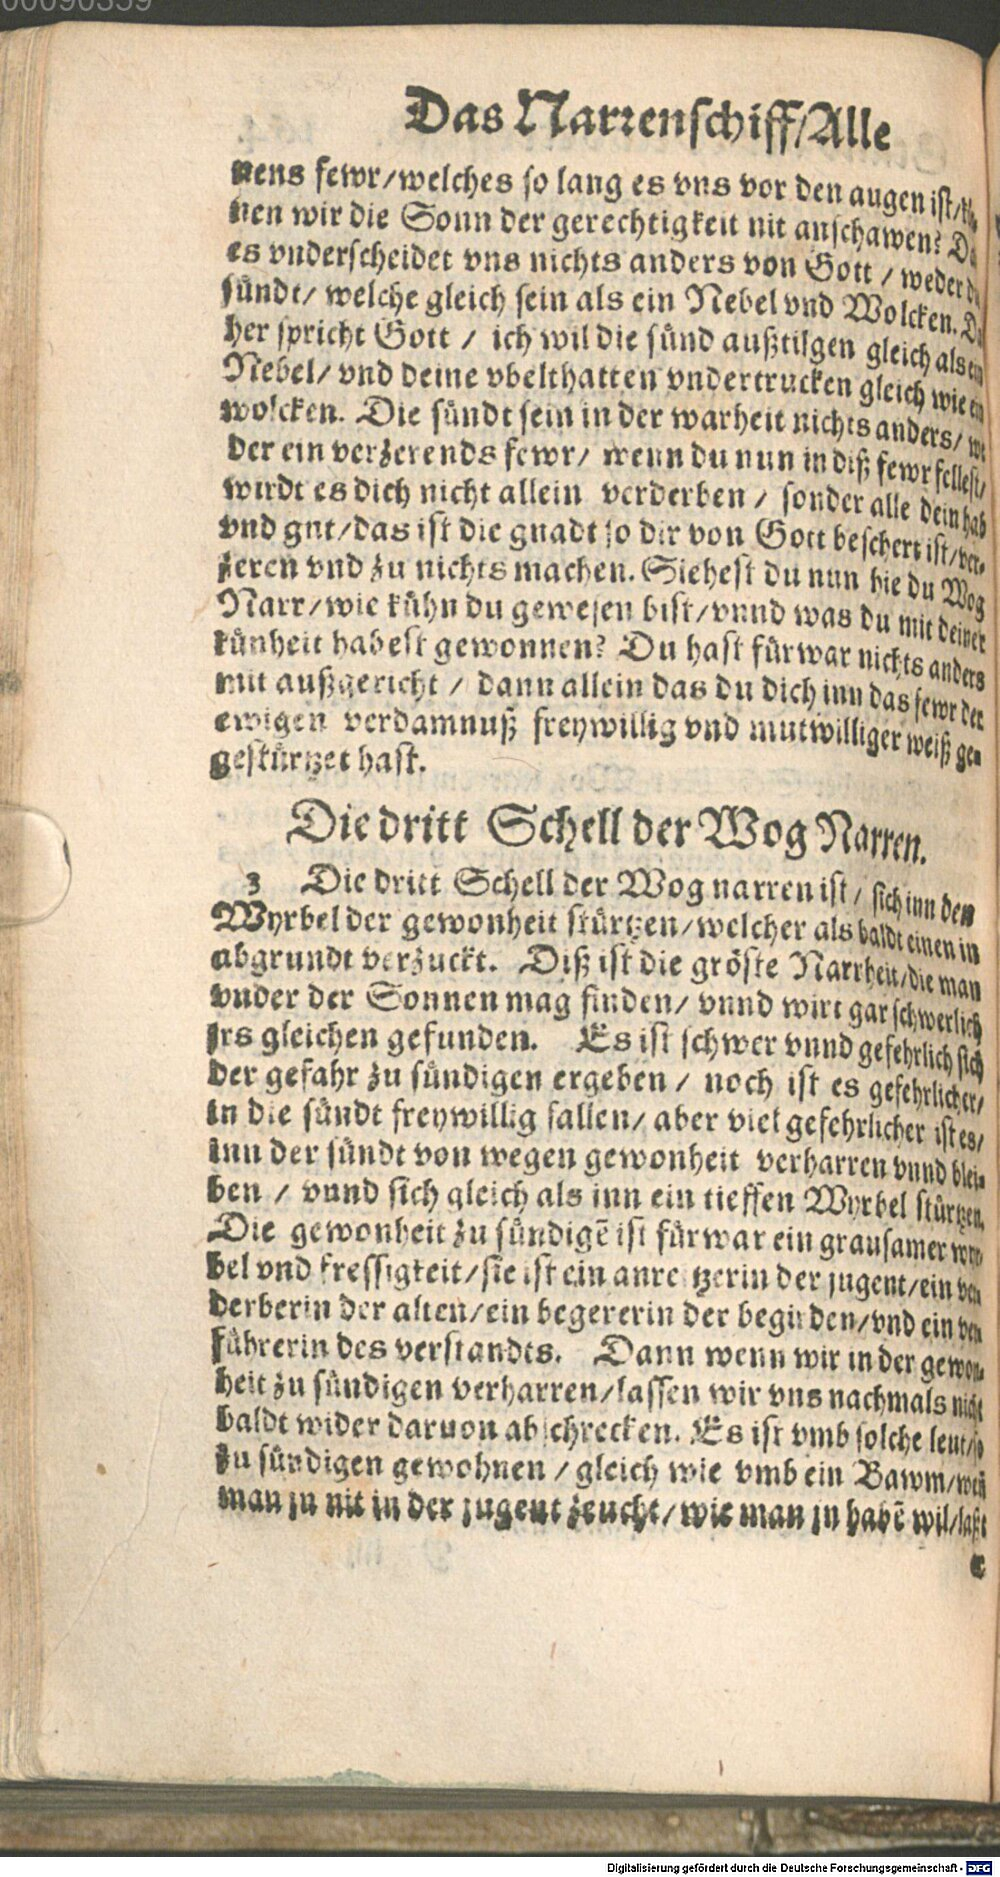 00090359
Das Narrenschiff/Alle
nens fewr/welches so lang es vns vor den augen ist/
nen wir die Sonn der gerechtigkeit nit anschawen? Da
es vnderscheidet vns nichts anders von Gott / weder die
sündt/ welche gleich sein als ein Nebel vnd Wolcken. Da
her spricht Gott / ich wil die sünd außtilgen gleich als ein
Nebel/ vnd deine vbelthatten vndertrucken gleich wie ein
wolcken. Die sündt sein in der warheit nichts anders/ we
der ein verzerends fewr/ wenn du nun in diß fewr fellest/
wirdt es dich nicht allein verderben / sonder alle dein hab
vnd gut/das ist die gnadt so dir von Gott beschert ist/ver-
zeren vnd zu nichts machen. Siehest du nun hie du Wog
Narr/wie kühn du gewesen bist/vnnd was du mit deiner
künheit habest gewonnen? Du hast fürwar nichts anders
mit außgericht / dann allein das du dich inn das fewr der
ewigen verdamnuß freywillig vnd mutwilliger weiß gen
gestürtzet hast.
Die dritt Schell der Wog Narren.
3 Die dritt Schell der Wog narren ist / sich inn den
Wyrbel der gewonheit stürtzen/welcher als baldt einen in
abgrundt verzuckt. Diß ist die gröste Narrheit/die man
vnder der Sonnen mag finden/ vnnd wirt gar schwerlich
jrs gleichen gefunden. Es ist schwer vnnd gefehrlich sich
der gefahr zu sündigen ergeben / noch ist es gefehrlicher/
in die sündt freywillig fallen/ aber viel gefehrlicher ist es/
inn der sündt von wegen gewonheit verharren vnnd blei-
ben / vnnd sich gleich als inn ein tieffen Wyrbel stürtzen.
Die gewonheit zu sündigẽ ist fürwar ein grausamer
bel vnd fressigkeit/sie ist ein anreitzerin der jugent/ein ver
derberin der alten/ein begererin der begirden/vnd ein ver
führerin des verstandts. Dann wenn wir in der gewon-
heit zu sündigen verharren/lassen wir vns nachmals nicht
baldt wider daruon abschrecken. Es ist vmb solche leut/so
zu sündigen gewohnen / gleich wie vmb ein Bawm/wen
man jn nit in der jugent zeucht/wie man jn habẽ wil/laßt
e
Digitalisierung gefördert durch die Deutsche Forschungsgemeinschaft - DFG